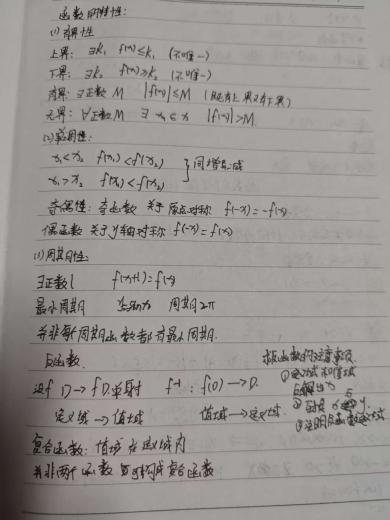 函数的特性:
(1)有界性
上界: ∃k₁ f(x)≤k₁ (不唯一)
下界: ∃k₂ f(x)≥k₂ (不唯一)
有界: ∃正数M |f(x)|≤M (既有上界又有下界)
无界: ∀正数M ∃ x₁∈X |f(x)|>M.
(2)单调性:
x₁<x₂ f(x₁)<f(x₂)
x₁>x₂ f(x₁)<f(x₂) } 同增异减
奇偶性: 奇函数 关于原点对称 f(-x)=-f(x)
偶函数 关于y轴对称 f(-x)=f(x)
(3)周期性:
∃正数l f(x+l)=f(x)
最小周期 周期2π
并非每个周期函数都有最小周期.
反函数.
设f D→f(D)单射 f⁻¹: f(D)→D.
定义域→值域 值域→定义域.
反函数的注意事项
①定义域和值域
②解出x
③ x y.
复合函数: 值域在定义域内
并非两个函数都可构成复合函数